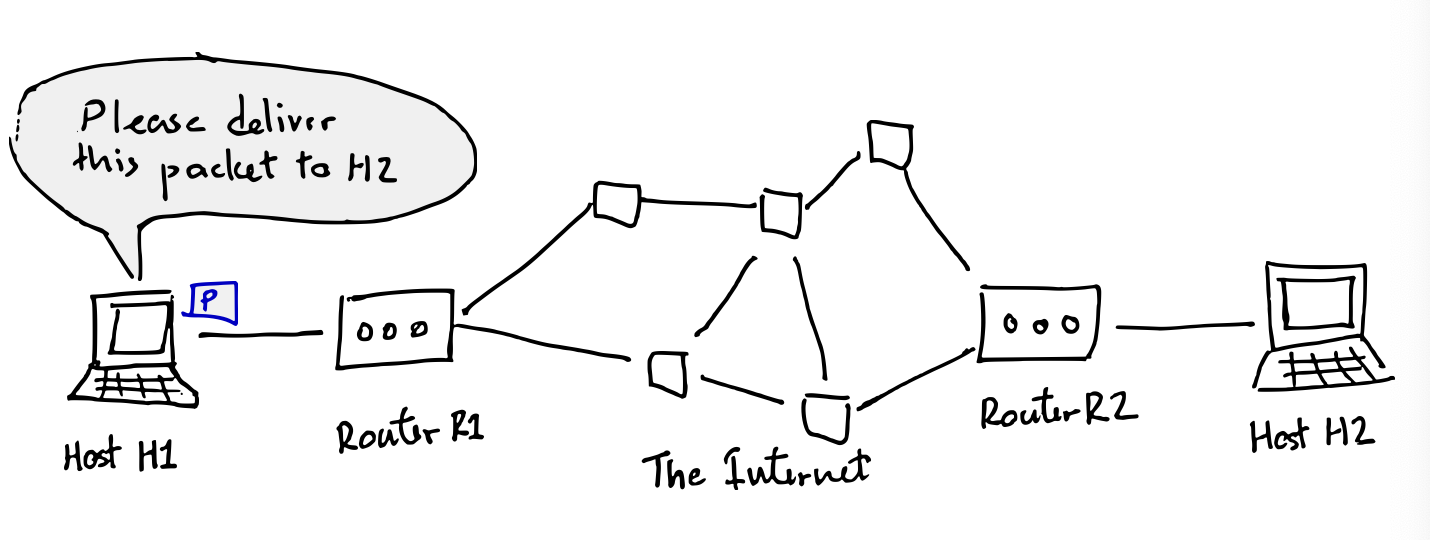 Please deliver
this packet to H2
P
Host H1
Router R1
The Internet
Router R2
Host H2